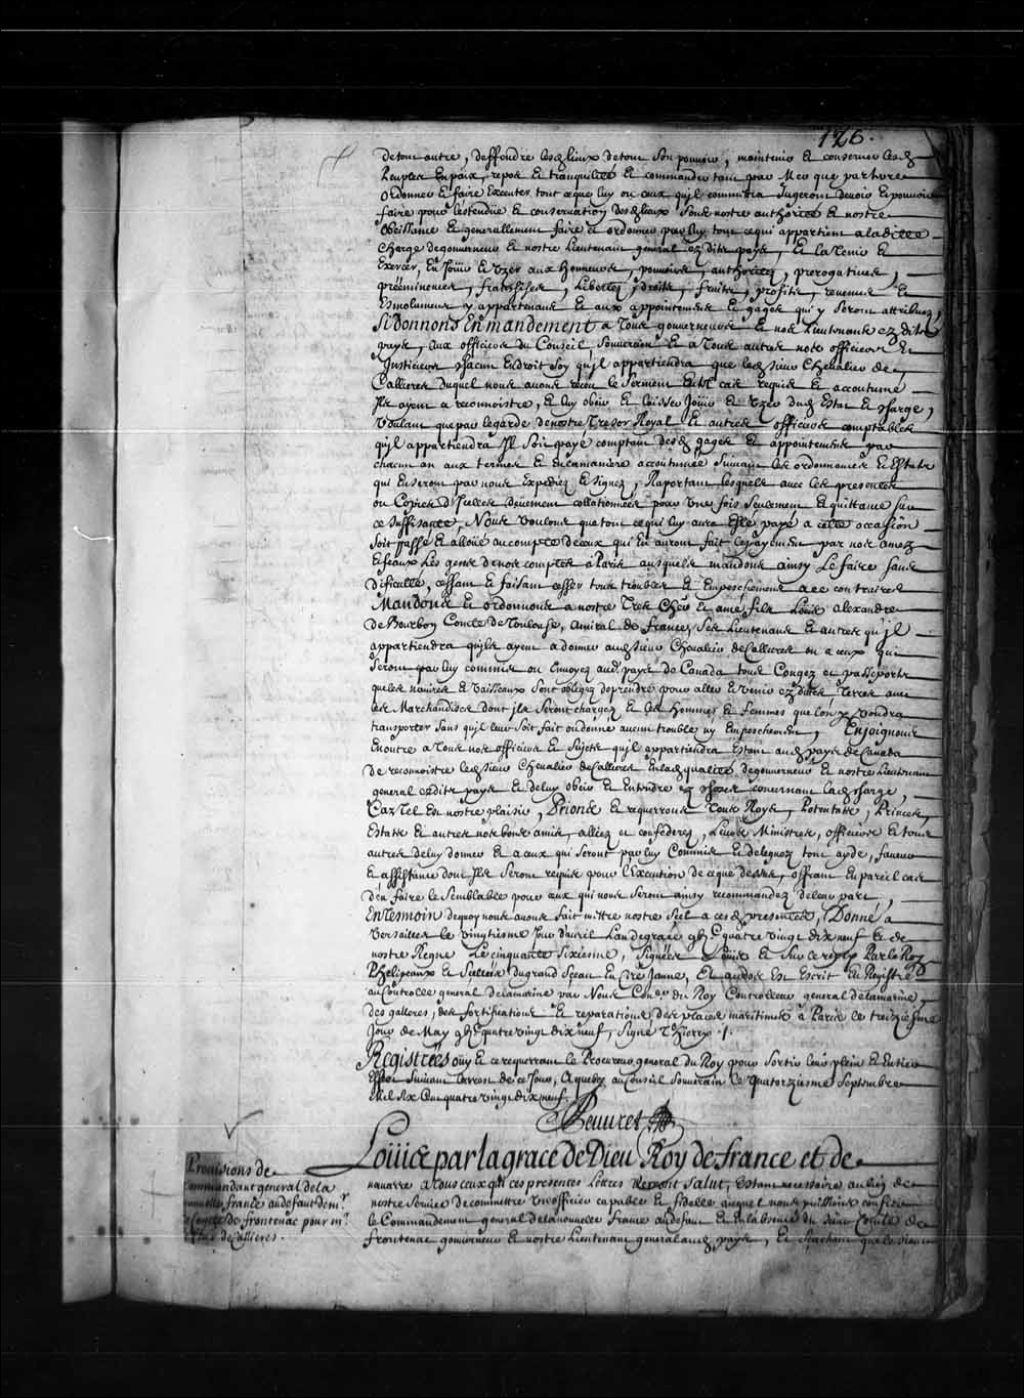 126.
de tout autre, deffendre lesd. lieux de tout son pouvoir, maintenir et conserver lesd.
Peuples En paix, repos et tranquilité et commander tant par Mer que par terre
ordonner et faire Executer tout ce que luy ou ceux qu'il commettra Jugeront devoir et pouvoir
faire pour l'estendüe et conservation desd. lieux sous nostre authorité et nostre
obeissance et generallement faire et ordonner par luy tout ce qui appartient a ladite
Charge de gouverneur et nostre Lieutenant general esdits pays, Et la tenir et
Exercer, En Joüir et Vzer aux Honneurs, pouvoirs, authoritez, prerogatives,
prééminences, franchises, Libertez, droits, fruits, profits, revenus et
Esmolumens y appartenans et aux appointemens et gages qui y seront attribuez,
Si donnons En mandement a Tous gouverneurs et nos Lieutenans esdits
pays, aux officiers du Conseil souverain et a Tous autres nos officiers et
Justiciers chacun Endroit soy qu'il appartiendra que led. sieur Chevalier de
Callieres duquel nous avons receu le serment En tel cas requis et accoutumé
Ils ayent a reconnoistre, et luy obeir et laisser Joüir et Vzer dud. Estat et charge,
Voulant que par le garde de nostre Tresor Royal et autres officiers comptables
qu'il appartiendra Il soit payé comptant desd. gages et appointemens par
chacun an aux termes et En la maniere accoutumée suivant les ordonnances et Estats
qui En seront par nous Expediez et signez, Raportant lesquels avec ces presentes
ou Copies d'Icelles düement collationnées pour une fois seulement et quittance sur
ce suffisante, Nous voulons que tout ce qui luy aura Esté payé a cette occasion
soit passé et alloüé au compte de ceux qui En auront fait le payement par nos amez
et feaux Les gens de nos comptes a Paris ausquels mandons ainsy Le faire sans
difficulté, cessant et faisant cesser tous troubles et Empeschemens a ce contraires
Mandons et ordonnons a nostre Tres Cher et amé fils Loüis alexandre
de Bourbon Comte de Toulouse, Amiral de France, ses Lieutenans et autres qu'jl
appartiendra qu'jls ayent a donner aud. sieur Chevalier de Callieres ou a ceux qui
seront par luy commis ou Envoyez aud. pays de Canada tous Congez et passeports
que les navires et vaisseaux sont obligez de prendre pour aller et venir esdites Terres avec
les Marchandises dont jls seront chargez et les Hommes et femmes que l'on y voudra
transporter sans qu'jl leur soit fait ou donné aucun trouble ny Empeschement, Enjoignons
En outre a Tous nos officiers et sujets qu'jl appartiendra Estant aud. pays de Canada
de reconnoistre led. sieur Chevalier de Callieres En lad. qualité de gouverneur et nostre Lieutenant
general esdits pays et de luy obeir et Entendre ez choses concernant lad. charge,
Car Tel Est nostre plaisir, Prions et requerrons Tous Roys, Potentats, Princes,
Estats et autres nos bons amis, alliez et confederez, Leurs Ministres, officiers et tous
autres de luy donner et a ceux qui seront par luy Commis et deleguez tout ayde, faveur
et assistance dont Ils seront requis pour l'Execution de ce que dessus, offrant En pareil cas
d'en faire le semblable pour ceux qui nous seront ainsy recommandez de leur part,
En Tesmoin de quoy nous avons fait mettre nostre seel a ces d. presentes, Donné a
Versailles le vingtiesme Jour d'avril L'an de grace quatre vingt dix neuf et de
nostre Regne Le cinquante sixiesme, Signées Loüis et sur ce reply Par le Roy
Phelipeaux et scellées du grand sceau En cire Jaune, Et au dos Est Escrit Enregistré
au Controlle general de la marine par Nous Con.er du Roy Controlleur general de la marine,
des galleres, des fortifications et reparations des places maritimes a Paris le treiziesme
Jour de May quatre vingt dix neuf, signé Thierry ./.
Registrées oüy et ce requerrant le Procureur general du Roy pour sortir leur plein et Entier
Effet suivant l'arrest de ce Jour, A quebec au Conseil souverain le quatorziesme septembre
Mil six Cens quatre vingt dix neuf.
Peuuret
Provisions de
Commandant general de la
nouvelle france au defaut de m.r
le Comte de frontenac pour m.r
de Callieres.
Loüis par la grace de Dieu Roy de france et de
navarre a Tous ceux qui ces presentes Lettres verront Salut, Estant necessaire au bien de
nostre service de commettre un officier capable et fidelle auquel nous puissions confier
le Commandement general de la nouvelle france au defaut et En l'absence du sieur Comte de
frontenac gouverneur et nostre Lieutenant general aud. pays, et sçachant que le sieur